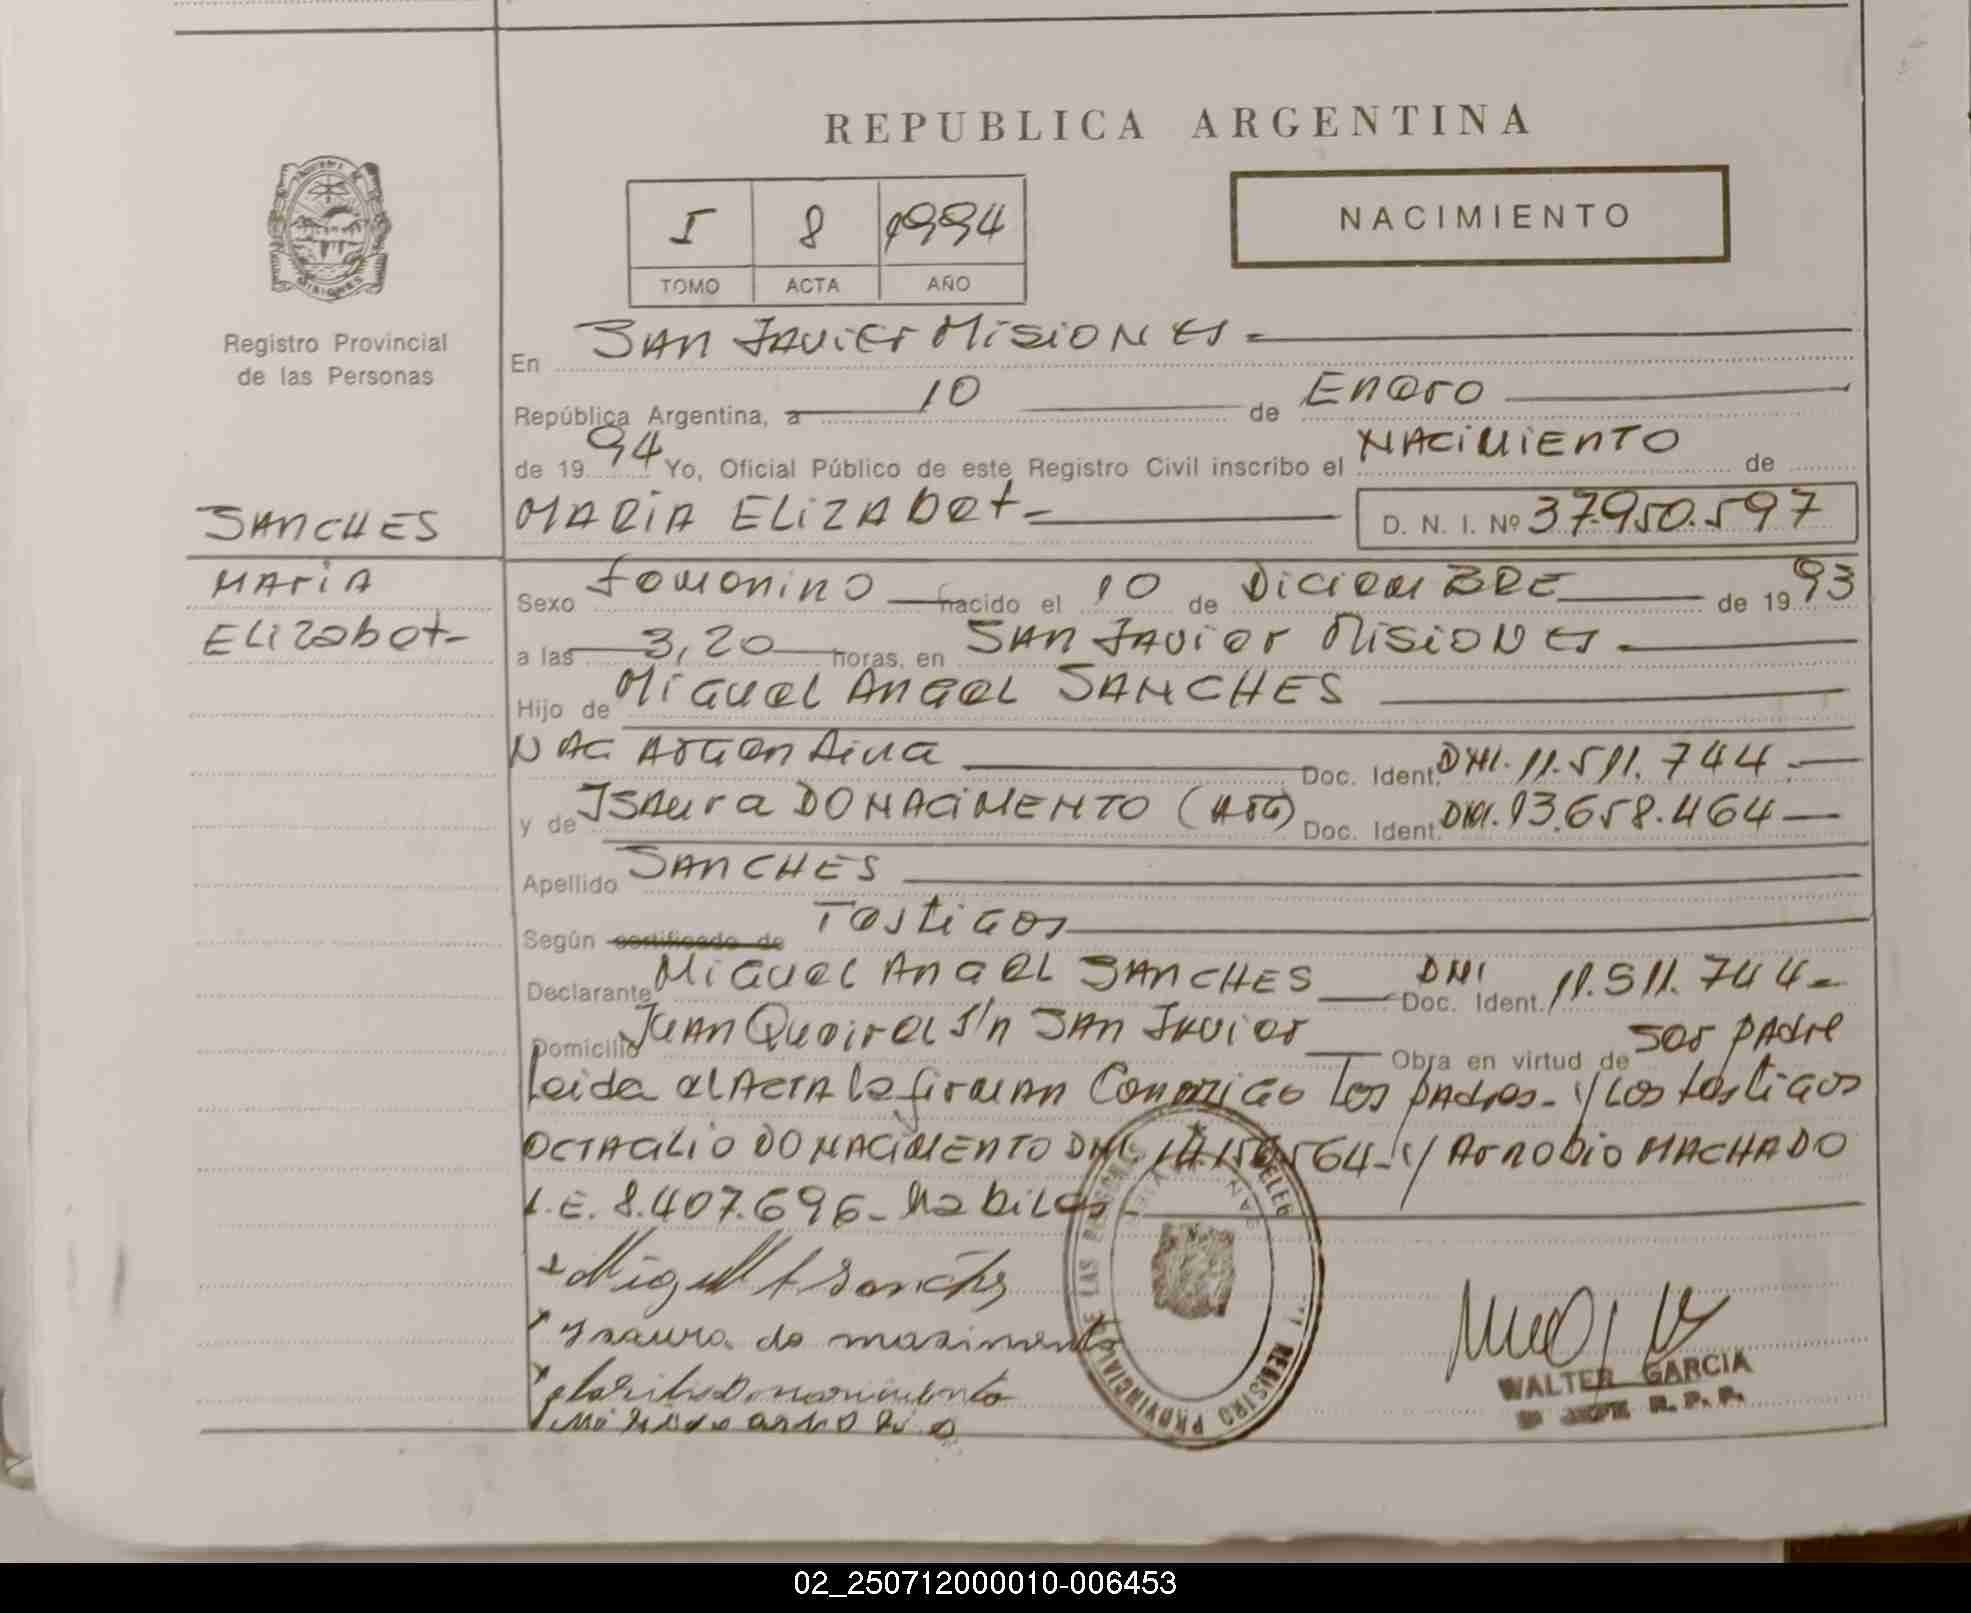 REPUBLICA ARGENTINA
I 8 1994
TOMO ACTA AÑO
NACIMIENTO
Registro Provincial
de las Personas
SANCHES
MARIA
Elizabet-
En SAN JAVIER MISIONES=
República Argentina, a 10 de Enero
de 1994 Yo, Oficial Público de este Registro Civil inscribo el NACIMIENTO de
MARIA ELIZABet- D. N. I. Nº 37.950.597
Sexo femenino nacido el 10 de DICIEMBRE de 1993
a las 3,20 horas, en SAN JAVIER MISIONES
Hijo de Miguel Angel SANCHES
NAC Argentina Doc. Ident. DNI. 11.511.744.
y de Isaura DO NACIMENTO (ARG) Doc. Ident. DNI. 13.658.464
Apellido SANCHES
Según certificado de Testigos
Declarante Miguel Angel SANCHES DNI Doc. Ident. 11.511.744-
Domicilio Juan Queirel S/n SAN Javier Obra en virtud de ser padre
Leida el ACTA la firman Conmigo los padres- y los testigos
OCTACILIO DO NACIMENTO DNI. 14.150.564- y Arnobio MACHADO
L.E. 8.407.696- habiles-
Miguel A Sanches
Ysaura do nasimento
DELEG SAN
REGISTRO PROVINCIAL DE LAS PERSONAS
WALTER GARCIA
JEFE R.P.P.
02_250712000010-006453